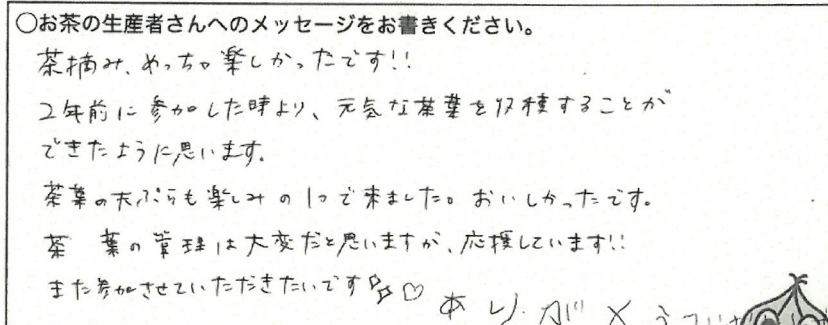 ○お茶の生産者さんへのメッセージをお書きください。
茶摘み、めっちゃ楽しかったです!!
2年前に参加した時より、元気な茶葉を収穫することが
できたように思います。
茶葉の天ぷらも楽しみの1つで来ました。おいしかったです。
茶 葉の管理は大変だと思いますが、応援しています!!
また参加させていただきたいです♡
ありが